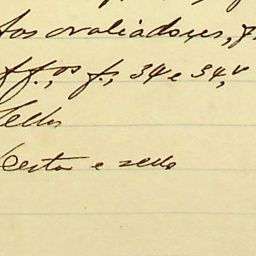 tos avaliadores, f
ff.os f. 34 e 34,v
Sello
Certa e sello